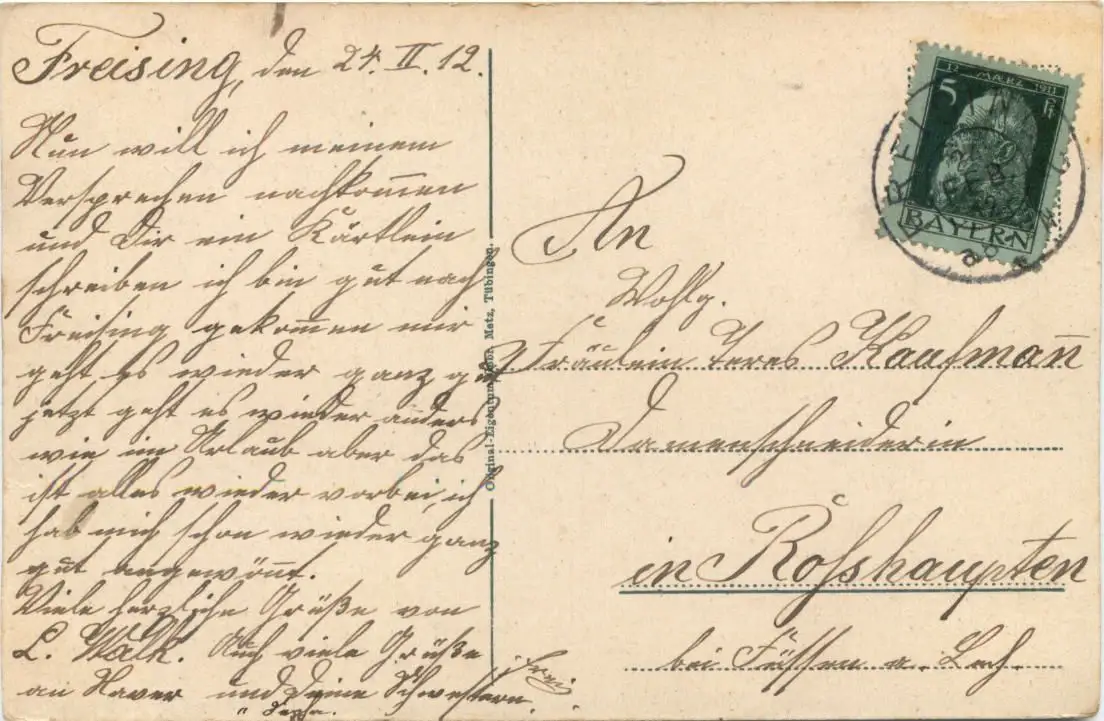 Freising, den 24. II. 12.
Nun will ich meinem
Versprechen nachkom̅en
und Dir ein Kärtlein
schreiben ich bin gut nach
Freising gekom̅en mir
geht es wieder ganz gut
jetzt geht es wieder anders
wie im Urlaub aber das
ist alles wieder vorbei, ich
hab mich schon wieder ganz
gut angewön̅t.
Viele herzliche Grüße von
L. Walk. Auch viele Grüße
an Xaver und Deine Schwestern.
" Sepha.
Original-Eigentum Metz, Tübingen.
12 MÆRZ 1911
5 Pf
BAYERN
FREISING
FEB
An
Wohlg.
Fräulein Teres Kaufman̅
Damenschneiderin
in Roßhaupten
bei Füssen a. Lech.